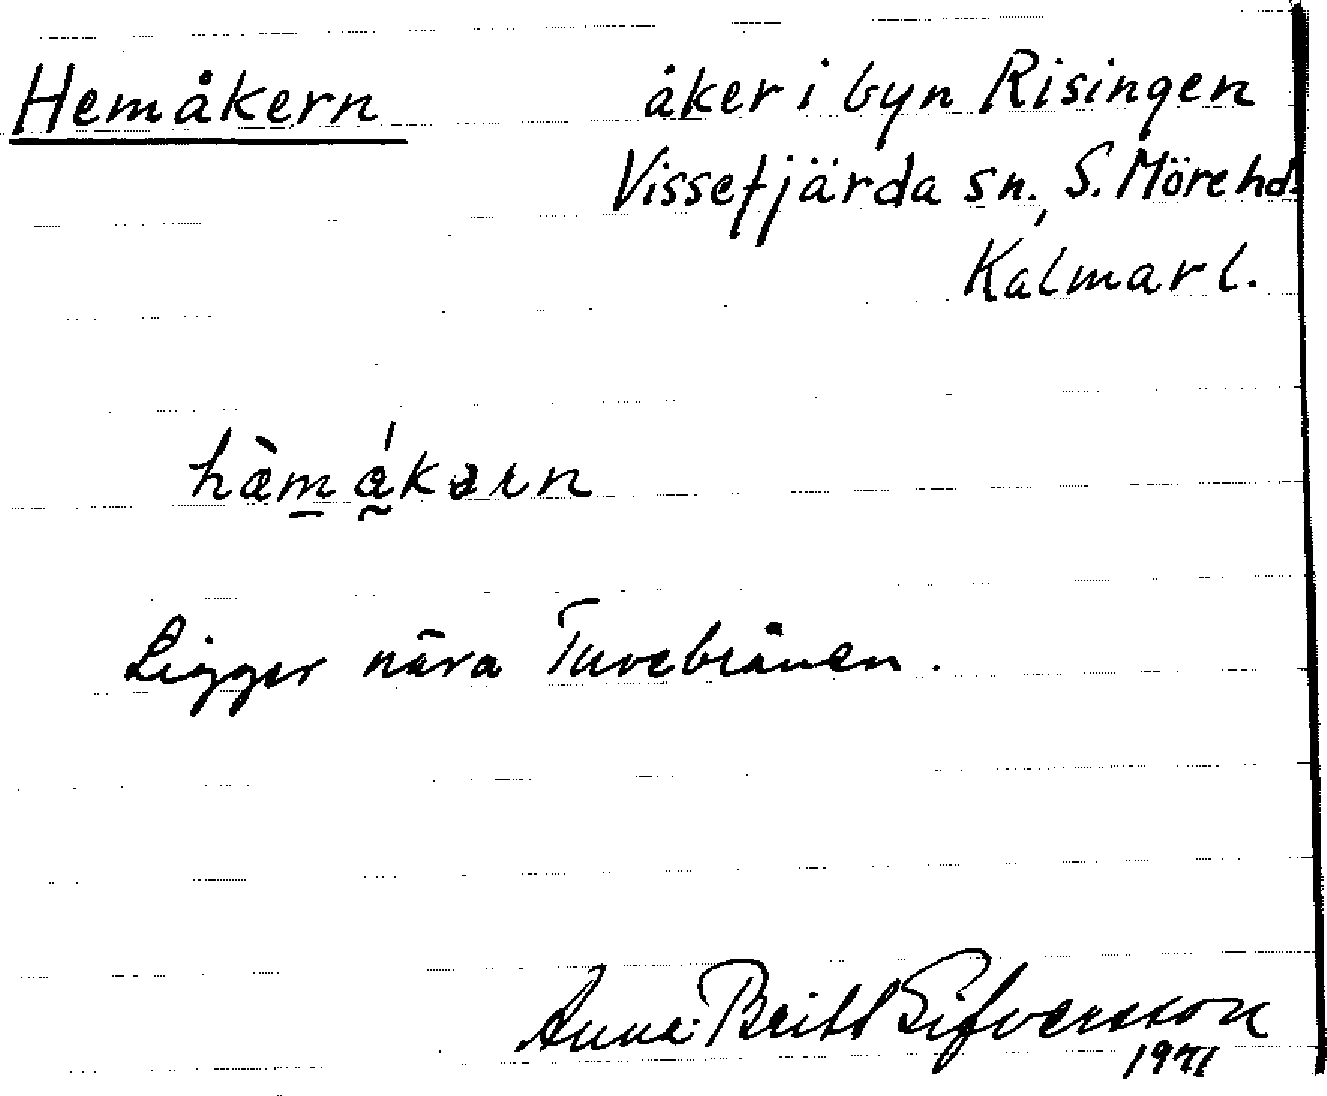 Hemåkern åker i byn Risingen
Vissefjärda sn., S. Möre hd.
Kalmar l.
hàmákərn
Ligger nära
Anna-Britt Sifversson
1971